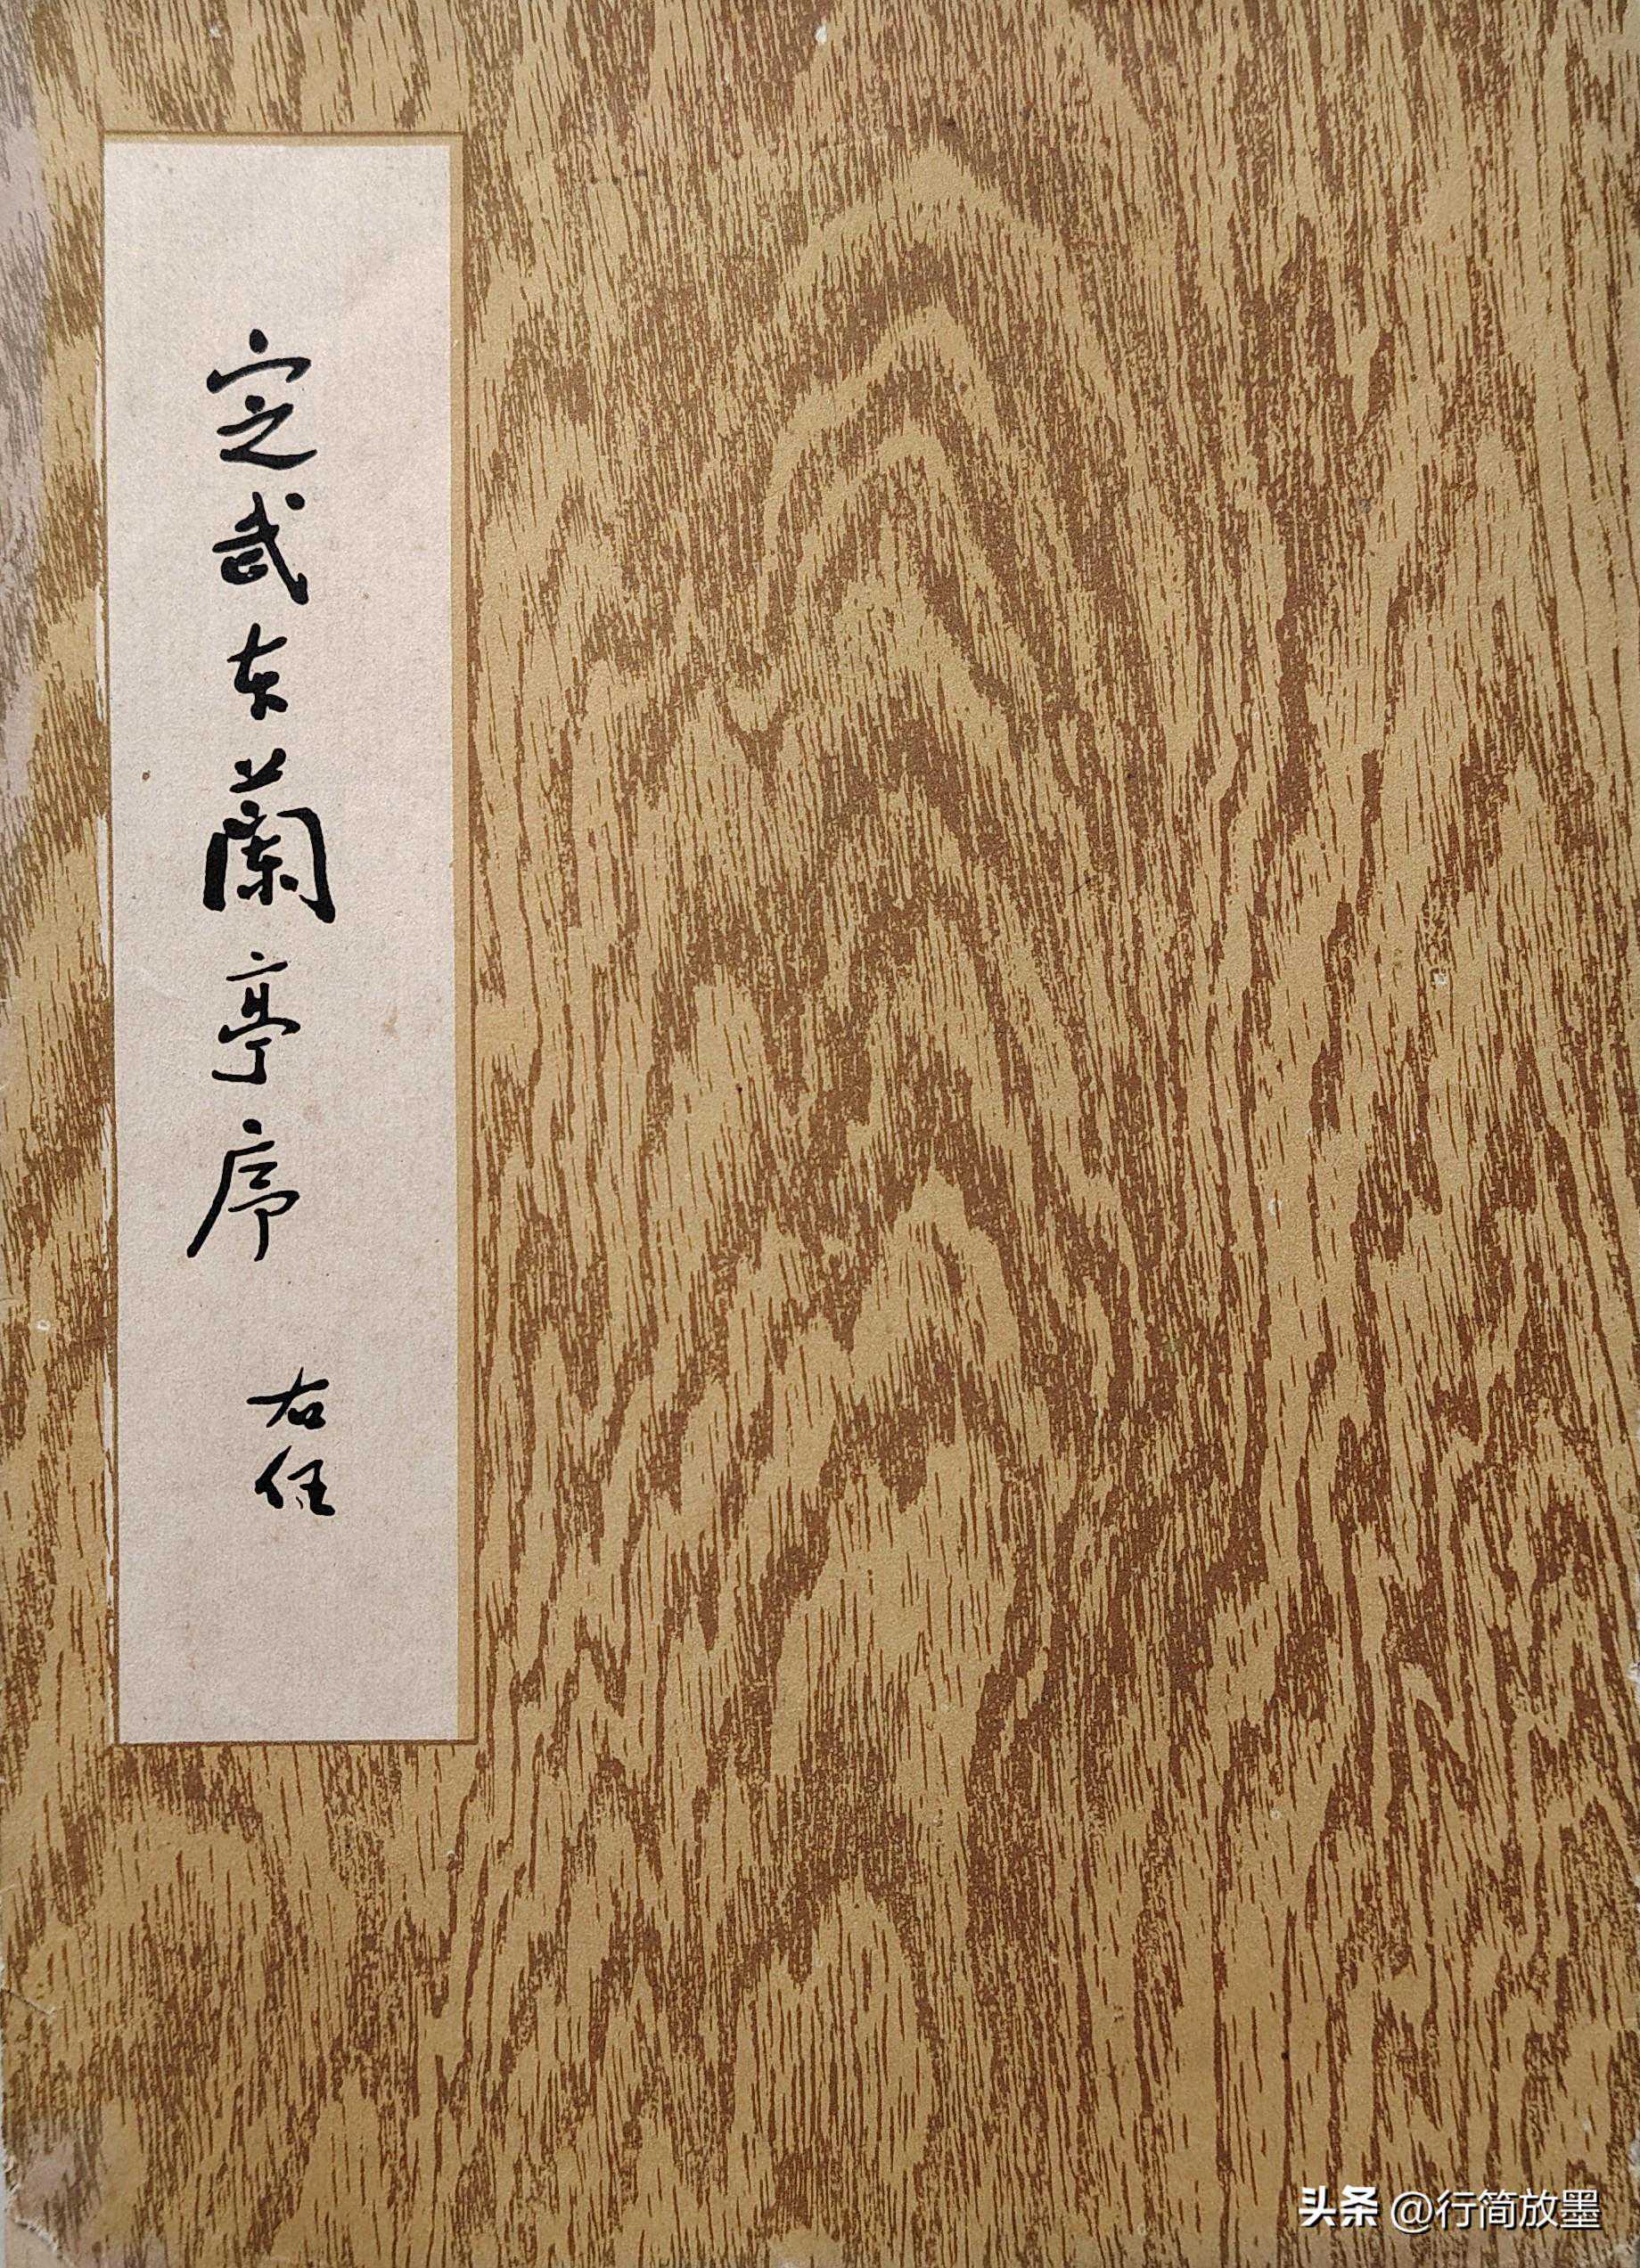 定武本蘭亭序
右任
头条 @行简放墨